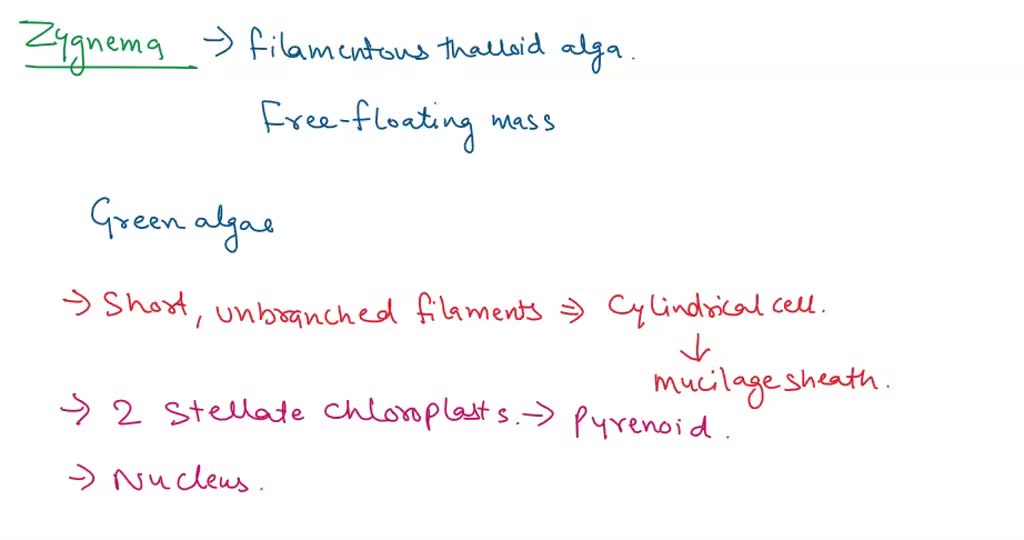 Zygnema → filamentous thalloid alga.
Free-floating mass
Green algae
→ Short, unbranched filaments ⇒ Cylindrical cell.
↓
mucilage sheath.
→ 2 stellate chloroplasts. → Pyrenoid.
→ Nucleus.